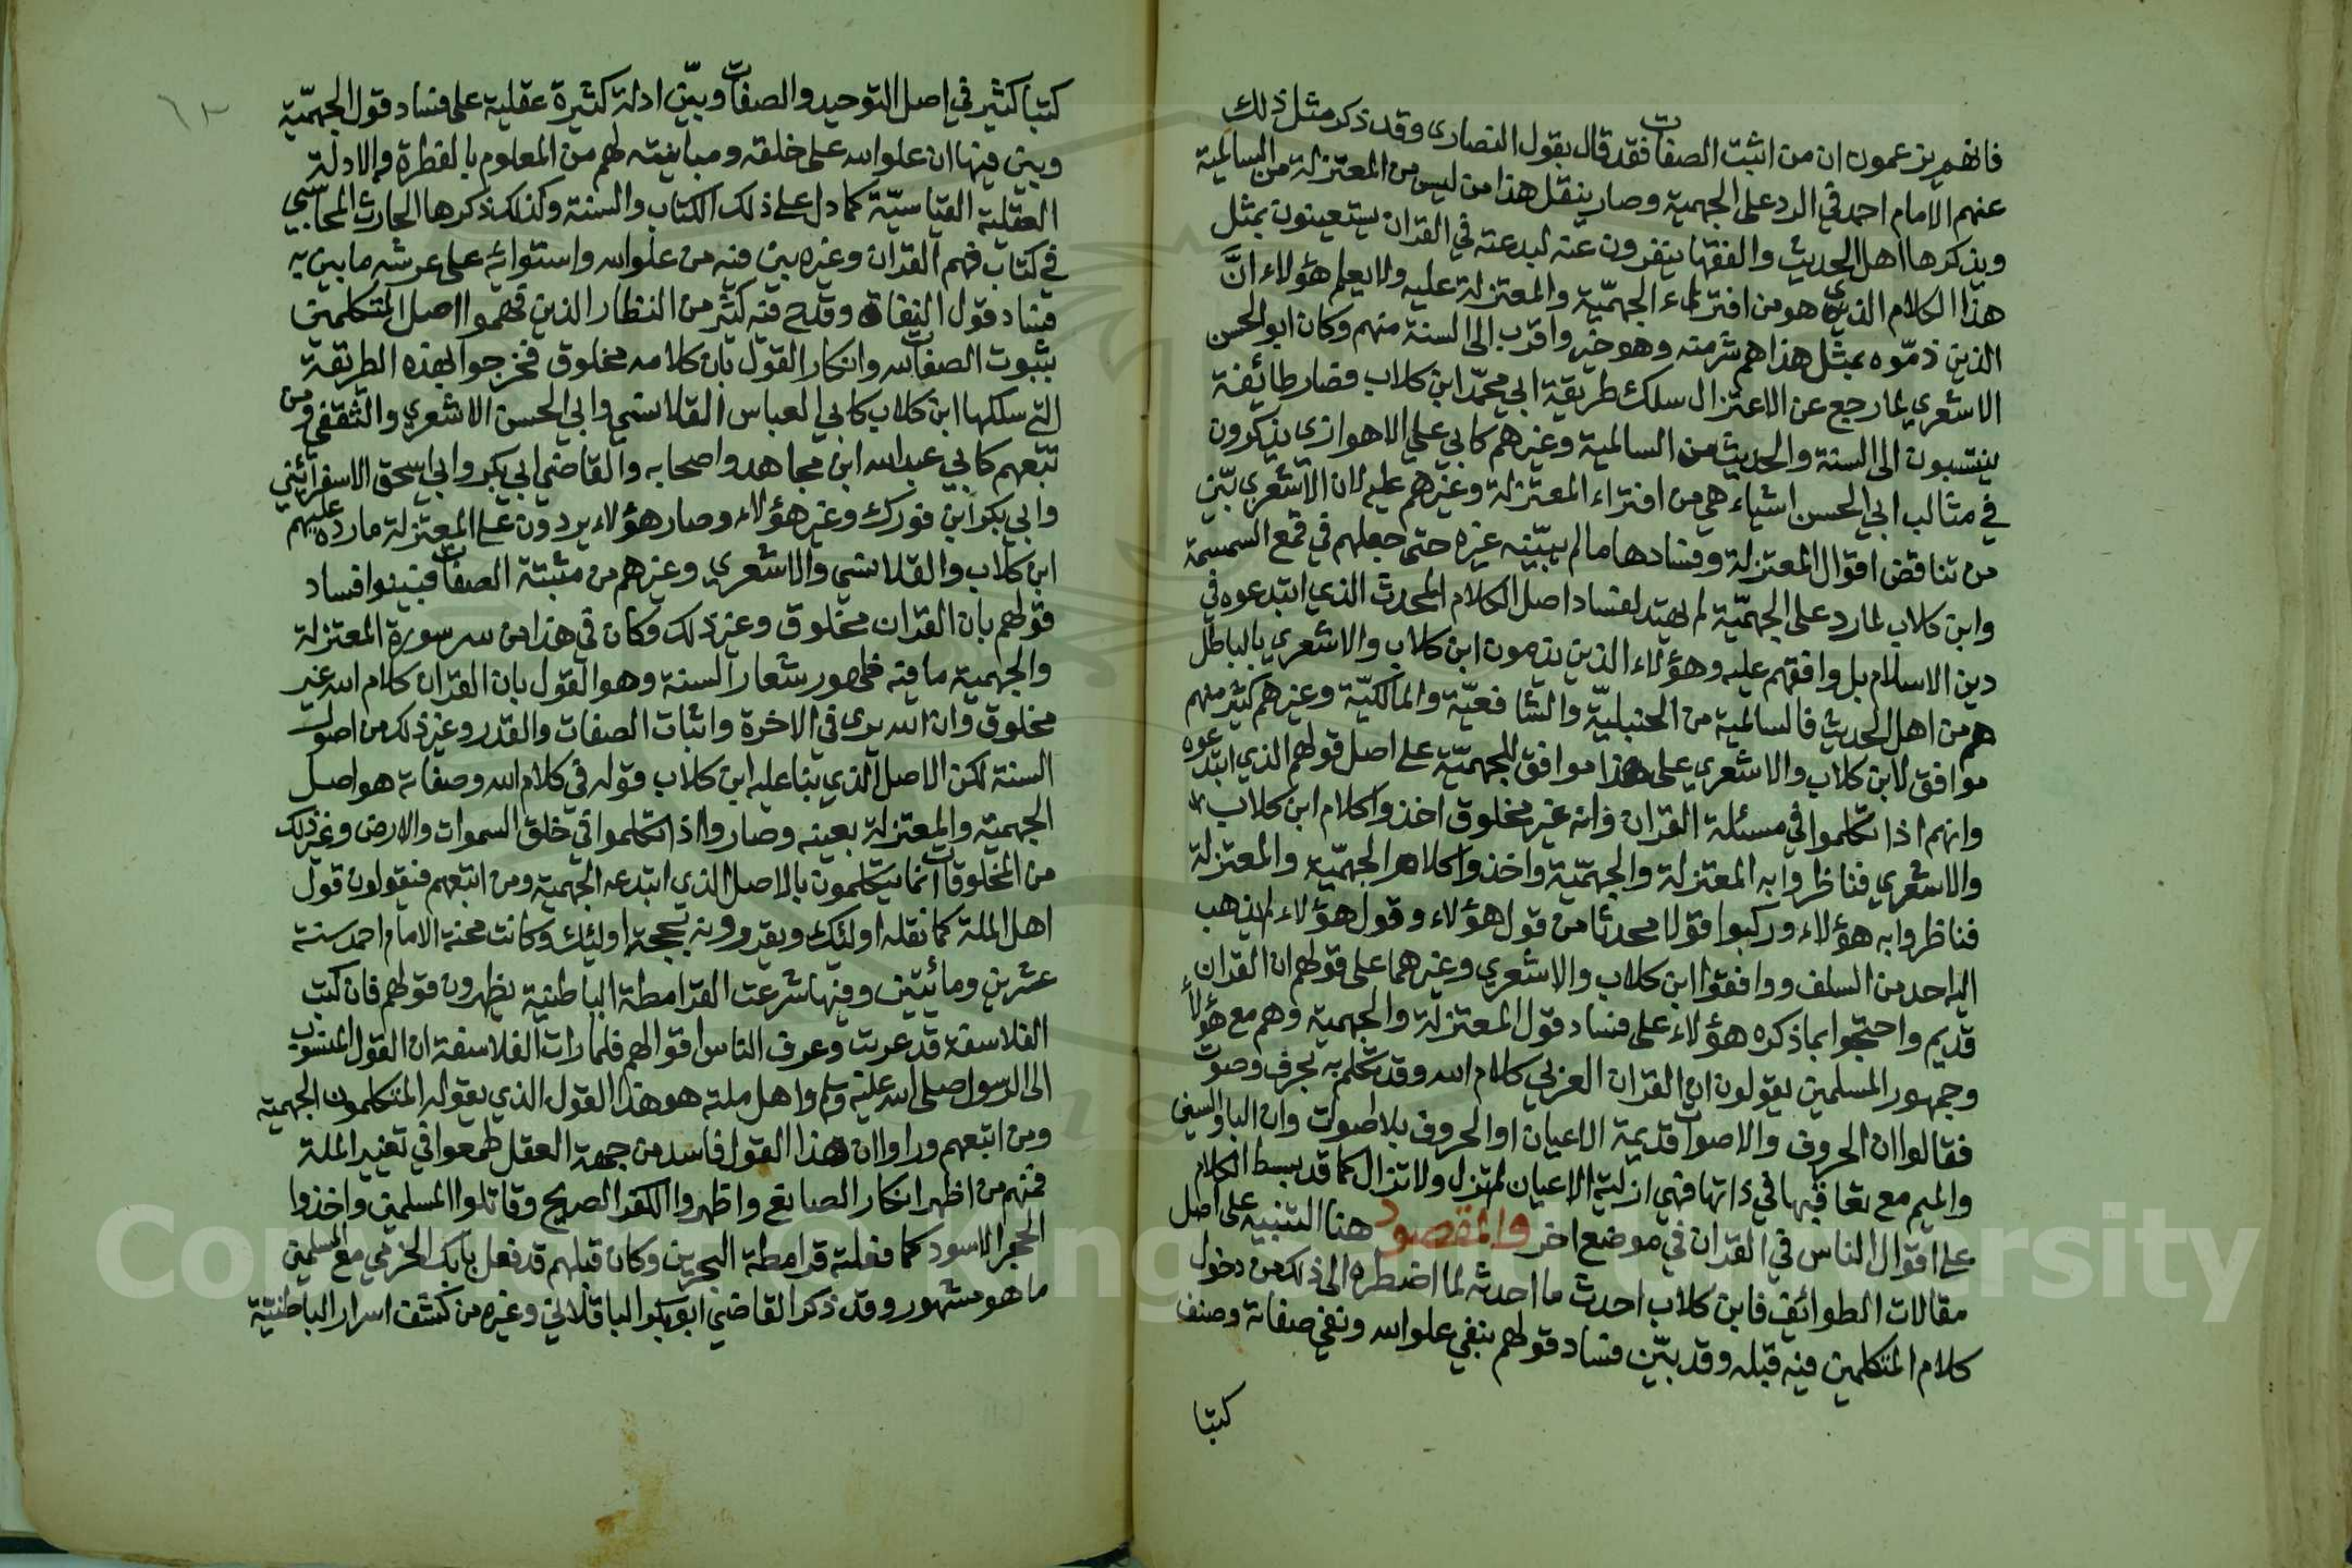 فانهم يزعمون ان من اثبت الصفات فقد قال بقول النصارى وقد ذكر مثل ذلك
عنهم الامام احمد في الرد على الجهمية وصار ينقل هذا من ليس من المعتزلة من السالمية
ويذكرها اهل الحديث والفقها ينفرون عنه لبدعته في القران يستعينون بمثل
هذا الكلام الذي هو من افتراء الجهميّة والمعتزلة عليه ولا يعلم هؤلاء انَّ
الذين ذمّوه بمثل هذا هم شر منه وهو خير واقرب الى السنة منهم وكان ابو الحسن
الاشعري لما رجع عن الاعتزال سلك طريقة ابي محمّد ابن كلاب فصار طائفة
ينتسبون الى السنة والحديث من السالمية وغيرهم كابي علي الاهوازي يذكرون
في مثالب ابي الحسن اشياء هي من افتراء المعتزلة وغيرهم عليه لان الاشعري بيّن
من تناقض اقوال المعتزلة وفسادها ما لم يبيّنه غيره حتى جعلهم في قمع السمسمة
وابن كلاب لما رد على الجهميّة لم يهتد لفساد اصل الكلام المحدث الذي ابتدعوه في
دين الاسلام بل وافقهم عليه وهؤلاء الذين يذمون ابن كلاب والاشعري بالباطل
هم من اهل الحديث فالسالمية من الحنبليّة والشافعيّة والمالكيّة وغيرهم كثير منهم
موافق لابن كلاب والاشعري على هذا موافق للجهميّة على اصل قولهم الذي ابتدعوه
وانهم اذا تكلموا في مسئلة القران وانه غير مخلوق اخذوا كلام ابن كلاب
والاشعري فناظروا به المعتزلة والجهميّة واخذوا كلام الجهميّة والمعتزلة
فناظروا به هؤلاء وركبوا قولا محدثا من قول هؤلاء وقول هؤلاء لم يذهب
اليه احد من السلف ووافقوا ابن كلاب والاشعري وغيرهما على قولهم ان القران
قديم واحتجوا بما ذكره هؤلاء على فساد قول المعتزلة والجهمية وهم مع هؤلاء
وجمهور المسلمين يقولون ان القران العربي كلام الله وقد تكلم به بحرف وصوت
فقالوا ان الحروف والاصوات قديمة الاعيان او الحروف بلا صوت وان البا والسين
والميم مع تعاقبها في ذاتها فهي ازلية الاعيان لم تزل ولا تزال كما قد بسط الكلام
على اقوال الناس في القران في موضع اخر والمقصود هنا التنبيه على اصل
مقالات الطوائف فابن كلاب احدث ما احدثه لما اضطره الى ذلك من دخول
كلام المتكلمين فيه قبله وقد بيّن فساد قولهم بنفي علو الله ونفي صفاته وصنف
كتبا
كتبا كثير في اصل التوحيد والصفات وبيّن ادلة كثيرة عقلية على فساد قول الجهميّة
وبين فيها ان علو الله على خلقه ومباينته لهم من المعلوم بالفطرة والادلة
العقلية القياسيّة كما دل على ذلك الكتاب والسنة وكذلك ذكرها الحارث المحاسبي
في كتاب فهم القران وغيره بين فيه من علو الله واستوائه على عرشه ما بين به
فساد قول النفاة وقدح فيه كثير من النظار الذين فهموا اصل المتكلمين
بثبوت الصفات لله وانكار القول بان كلامه مخلوق فخرجوا بهذه الطريقة
التي سلكها ابن كلاب كابي العباس القلانسي وابي الحسن الاشعري والثقفي ومن
تبعهم كابي عبد الله ابن مجاهد واصحابه والقاضي ابي بكر وابي اسحق الاسفرائني
وابي بكر ابن فورك وغير هؤلاء وصار هؤلاء يردون على المعتزلة ما رده عليهم
ابن كلاب والقلانسي والاشعري وغيرهم من مثبتة الصفات فبينوا فساد
قولهم بان القران مخلوق وغير ذلك وكان في هذا من سر سورة المعتزلة
والجهمية ما فيه ظهور شعار السنة وهو القول بان القران كلام الله غير
مخلوق وان الله يرى في الاخرة واثبات الصفات والقدر وغير ذلك من اصول
السنة لكن الاصل الذي بنا عليه ابن كلاب قوله في كلام الله وصفاته هو اصل
الجهمية والمعتزلة بعينه وصاروا اذا تكلموا في خلق السموات والارض وغير ذلك
من المخلوقات انما يتكلمون بالاصل الذي ابتدعه الجهمية ومن اتبعهم فيقولون قول
اهل الملة كما نقله اولئك ويقدرونه بحجة اوليئك وكانت محنة الامام احمد سنة
عشرين ومائيتين وفيها شرعت القرامطة الباطنية يظهرون قولهم فان كتب
الفلاسفة قد عربت وعرف الناس اقوالهم فلما رات الفلاسفة ان القول المنسوب
الى الرسول صلى الله عليه وسلم واهل ملته هو هذا القول الذي يقوله المتكلمون الجهمية
ومن اتبعهم وراوا ان هذا القول فاسد من جهة العقل طمعوا في تغيير الملة
فمنهم من اظهر انكار الصانع واظهروا الكفر الصريح وقاتلوا المسلمين واخذوا
الحجر الاسود كما فعلته قرامطة البحرين وكان قبلهم قد فعل بابك الخرمي مع المسلمين
ما هو مشهور وقد ذكر القاضي ابو بكر الباقلاني وغيره من كشف اسرار الباطنيّة